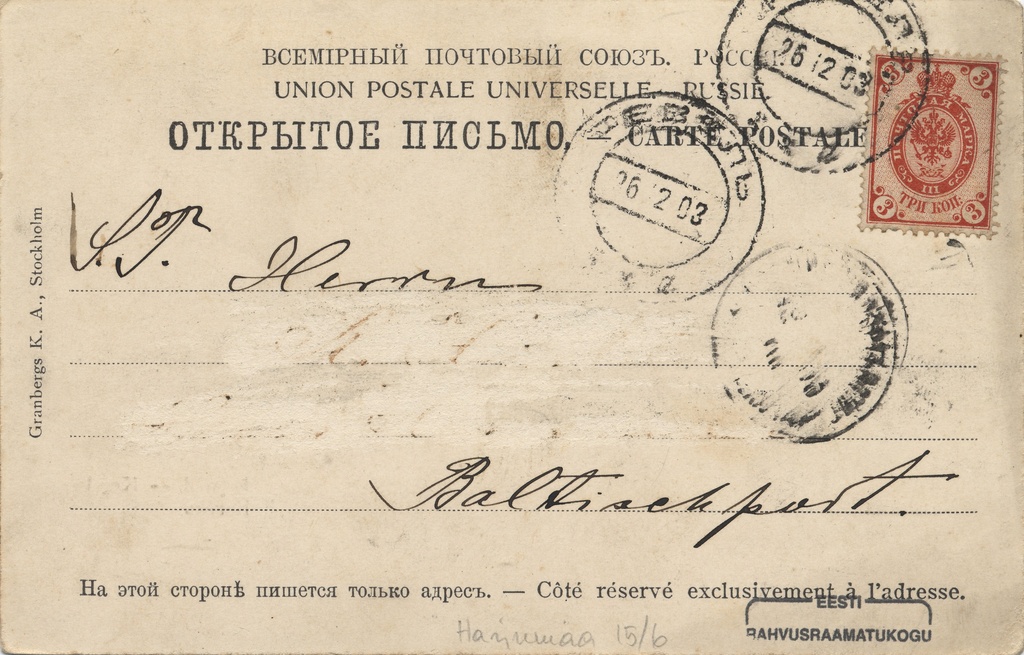 ВСЕМІРНЫЙ ПОЧТОВЫЙ СОЮЗЪ. РОССІЯ.
UNION POSTALE UNIVERSELLE. RUSSIE.
ОТКРЫТОЕ ПИСЬМО, — CARTE POSTALE
РЕВЕЛЬ
26 12 03
РЕВЕЛЬ
26 12 03
3 3
ПОЧТОВАЯ МАРКА
III
ТРИ КОП.
3 3
Granbergs K. A., Stockholm
S.T. Herrn
Baltischport.
На этой сторонѣ пишется только адресъ. — Côté réservé exclusivement à l'adresse.
EESTI
RAHVUSRAAMATUKOGU
Harjumaa 15/6